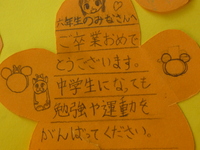 六年生のみなさんへ
ご卒業おめで
とうございます。
中学生になっても
勉強や運動を
がんばってください。